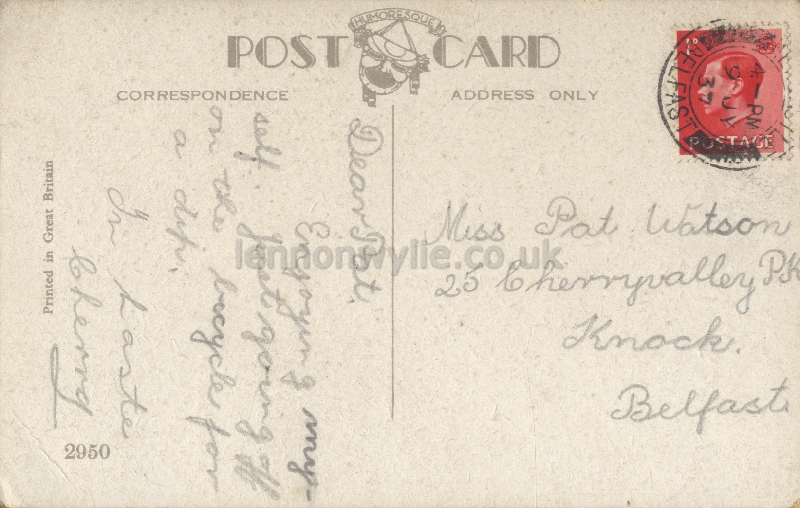 HUMORESQUE
POST CARD
CORRESPONDENCE
ADDRESS ONLY
Printed in Great Britain
2950
Dear Pat,
Enjoying my-
self. Just going off
on the bicycle for
a dip.
In haste
Cherry
Miss Pat Watson
25 Cherryvalley PK
Knock.
Belfast.
BELFAST
4 - PM
9 JY
37
1D
POSTAGE
lennonwylie.co.uk